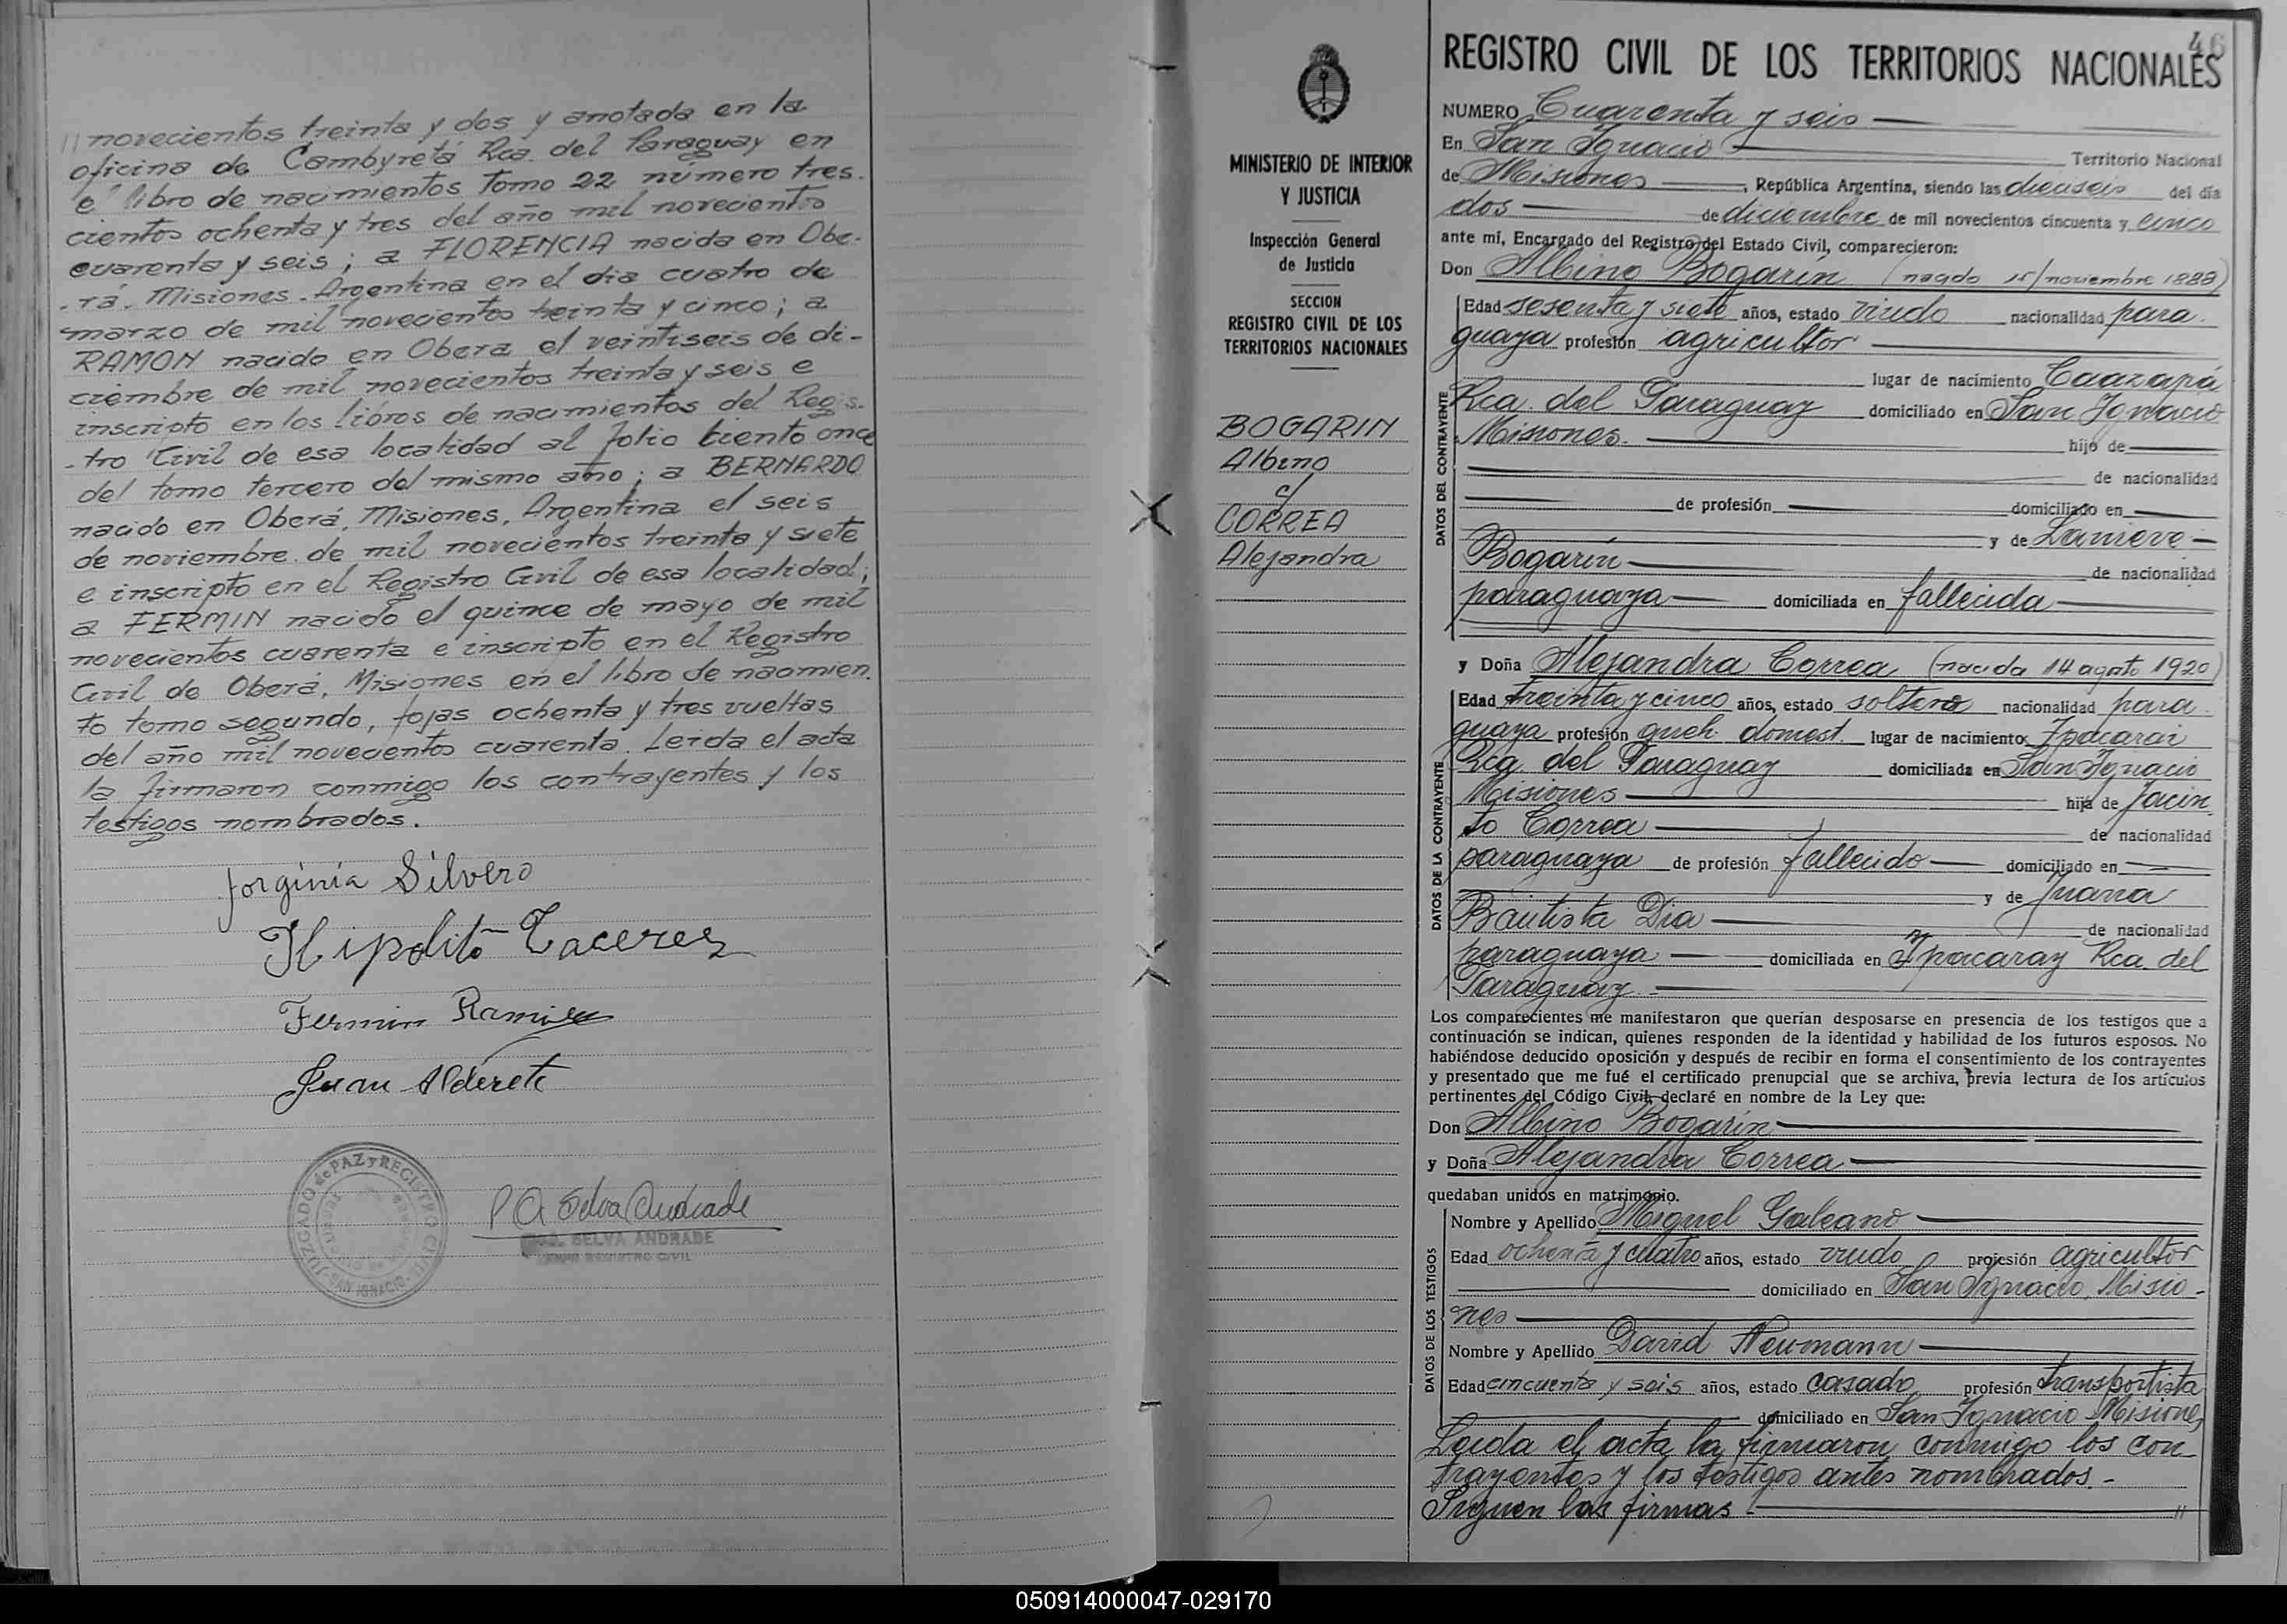 // novecientos treinta y dos y anotada en la
oficina de Cambyretá Rca. del Paraguay en
e' libro de nacimientos tomo 22 número tres.
cientos ochenta y tres del año mil novecientos
cuarenta y seis; a FLORENCIA nacida en Obe-
-rá. Misiones. Argentina en el dia cuatro de
marzo de mil novecientos treinta y cinco; a
RAMON nacido en Obera el veintiseis de di-
ciembre de mil novecientos treinta y seis e
inscripto en los libros de nacimientos del Regis-
-tro Civil de esa localidad al folio ciento once
del tomo tercero del mismo año; a BERNARDO
nacido en Oberá, Misiones, Argentina el seis
de noviembre de mil novecientos treinta y siete
e inscripto en el Registro Civil de esa localidad;
a FERMIN nacido el quince de mayo de mil
novecientos cuarenta e inscripto en el Registro
Civil de Oberá, Misiones en el libro de nacimien.
to tomo segundo, fojas ochenta y tres vueltas
del año mil novecientos cuarenta. Leida el acta
la firmaron conmigo los contrayentes y los
testigos nombrados.
Jorginia Silvero
Hipolito Caceres
Fermin Ramirez
Juan Alderete
JUZGADO de PAZ y REGISTRO CIVIL
SAN IGNACIO
P A Selva Andrade
SELVA ANDRADE
REGISTRO CIVIL
MINISTERIO DE INTERIOR
Y JUSTICIA
Inspección General
de Justicia
SECCION
REGISTRO CIVIL DE LOS
TERRITORIOS NACIONALES
BOGARIN
Albino
c/
CORREA
Alejandra
46
REGISTRO CIVIL DE LOS TERRITORIOS NACIONALES
NUMERO Cuarenta y seis
En San Ignacio Territorio Nacional
de Misiones, República Argentina, siendo las dieciseis del día
dos de diciembre de mil novecientos cincuenta y cinco
ante mí, Encargado del Registro del Estado Civil, comparecieron:
Don Albino Bogarin (nacido 15/noviembre 1888)
DATOS DEL CONTRAYENTE
Edad sesenta y siete años, estado viudo nacionalidad para.
guaya profesión agricultor
lugar de nacimiento Caazapá
Rca. del Paraguay domiciliado en San Ignacio
Misiones. hijo de
de nacionalidad
de profesión domiciliado en
y de
Bogarin de nacionalidad
paraguaya domiciliada en fallecida
y Doña Alejandra Correa (nacida 14 agosto 1920)
DATOS DE LA CONTRAYENTE
Edad treinta y cinco años, estado soltera nacionalidad para.
guaya profesión queh. domest. lugar de nacimiento Ipacarai
Rca. del Paraguay domiciliada en San Ignacio
Misiones hija de Jacin
to Correa de nacionalidad
paraguaya de profesión fallecido domiciliado en
y de Juana
Bautista Dia de nacionalidad
paraguaya domiciliada en Ypacaray Rca. del
Paraguay.
Los comparecientes me manifestaron que querían desposarse en presencia de los testigos que a
continuación se indican, quienes responden de la identidad y habilidad de los futuros esposos. No
habiéndose deducido oposición y después de recibir en forma el consentimiento de los contrayentes
y presentado que me fué el certificado prenupcial que se archiva, previa lectura de los artículos
pertinentes del Código Civil, declaré en nombre de la Ley que:
Don Albino Bogarin
y Doña Alejandra Correa
quedaban unidos en matrimonio.
DATOS DE LOS TESTIGOS
Nombre y Apellido Miguel Galeano
Edad ochenta y cuatro años, estado viudo profesión agricultor
domiciliado en San Ignacio, Misio-
nes
Nombre y Apellido David Neumann
Edad cincuenta y seis años, estado casado profesión transportista
domiciliado en San Ignacio Misiones
Leida el acta la firmaron conmigo los con
trayentes y los testigos antes nombrados.-
Siguen las firmas - //
050914000047-029170